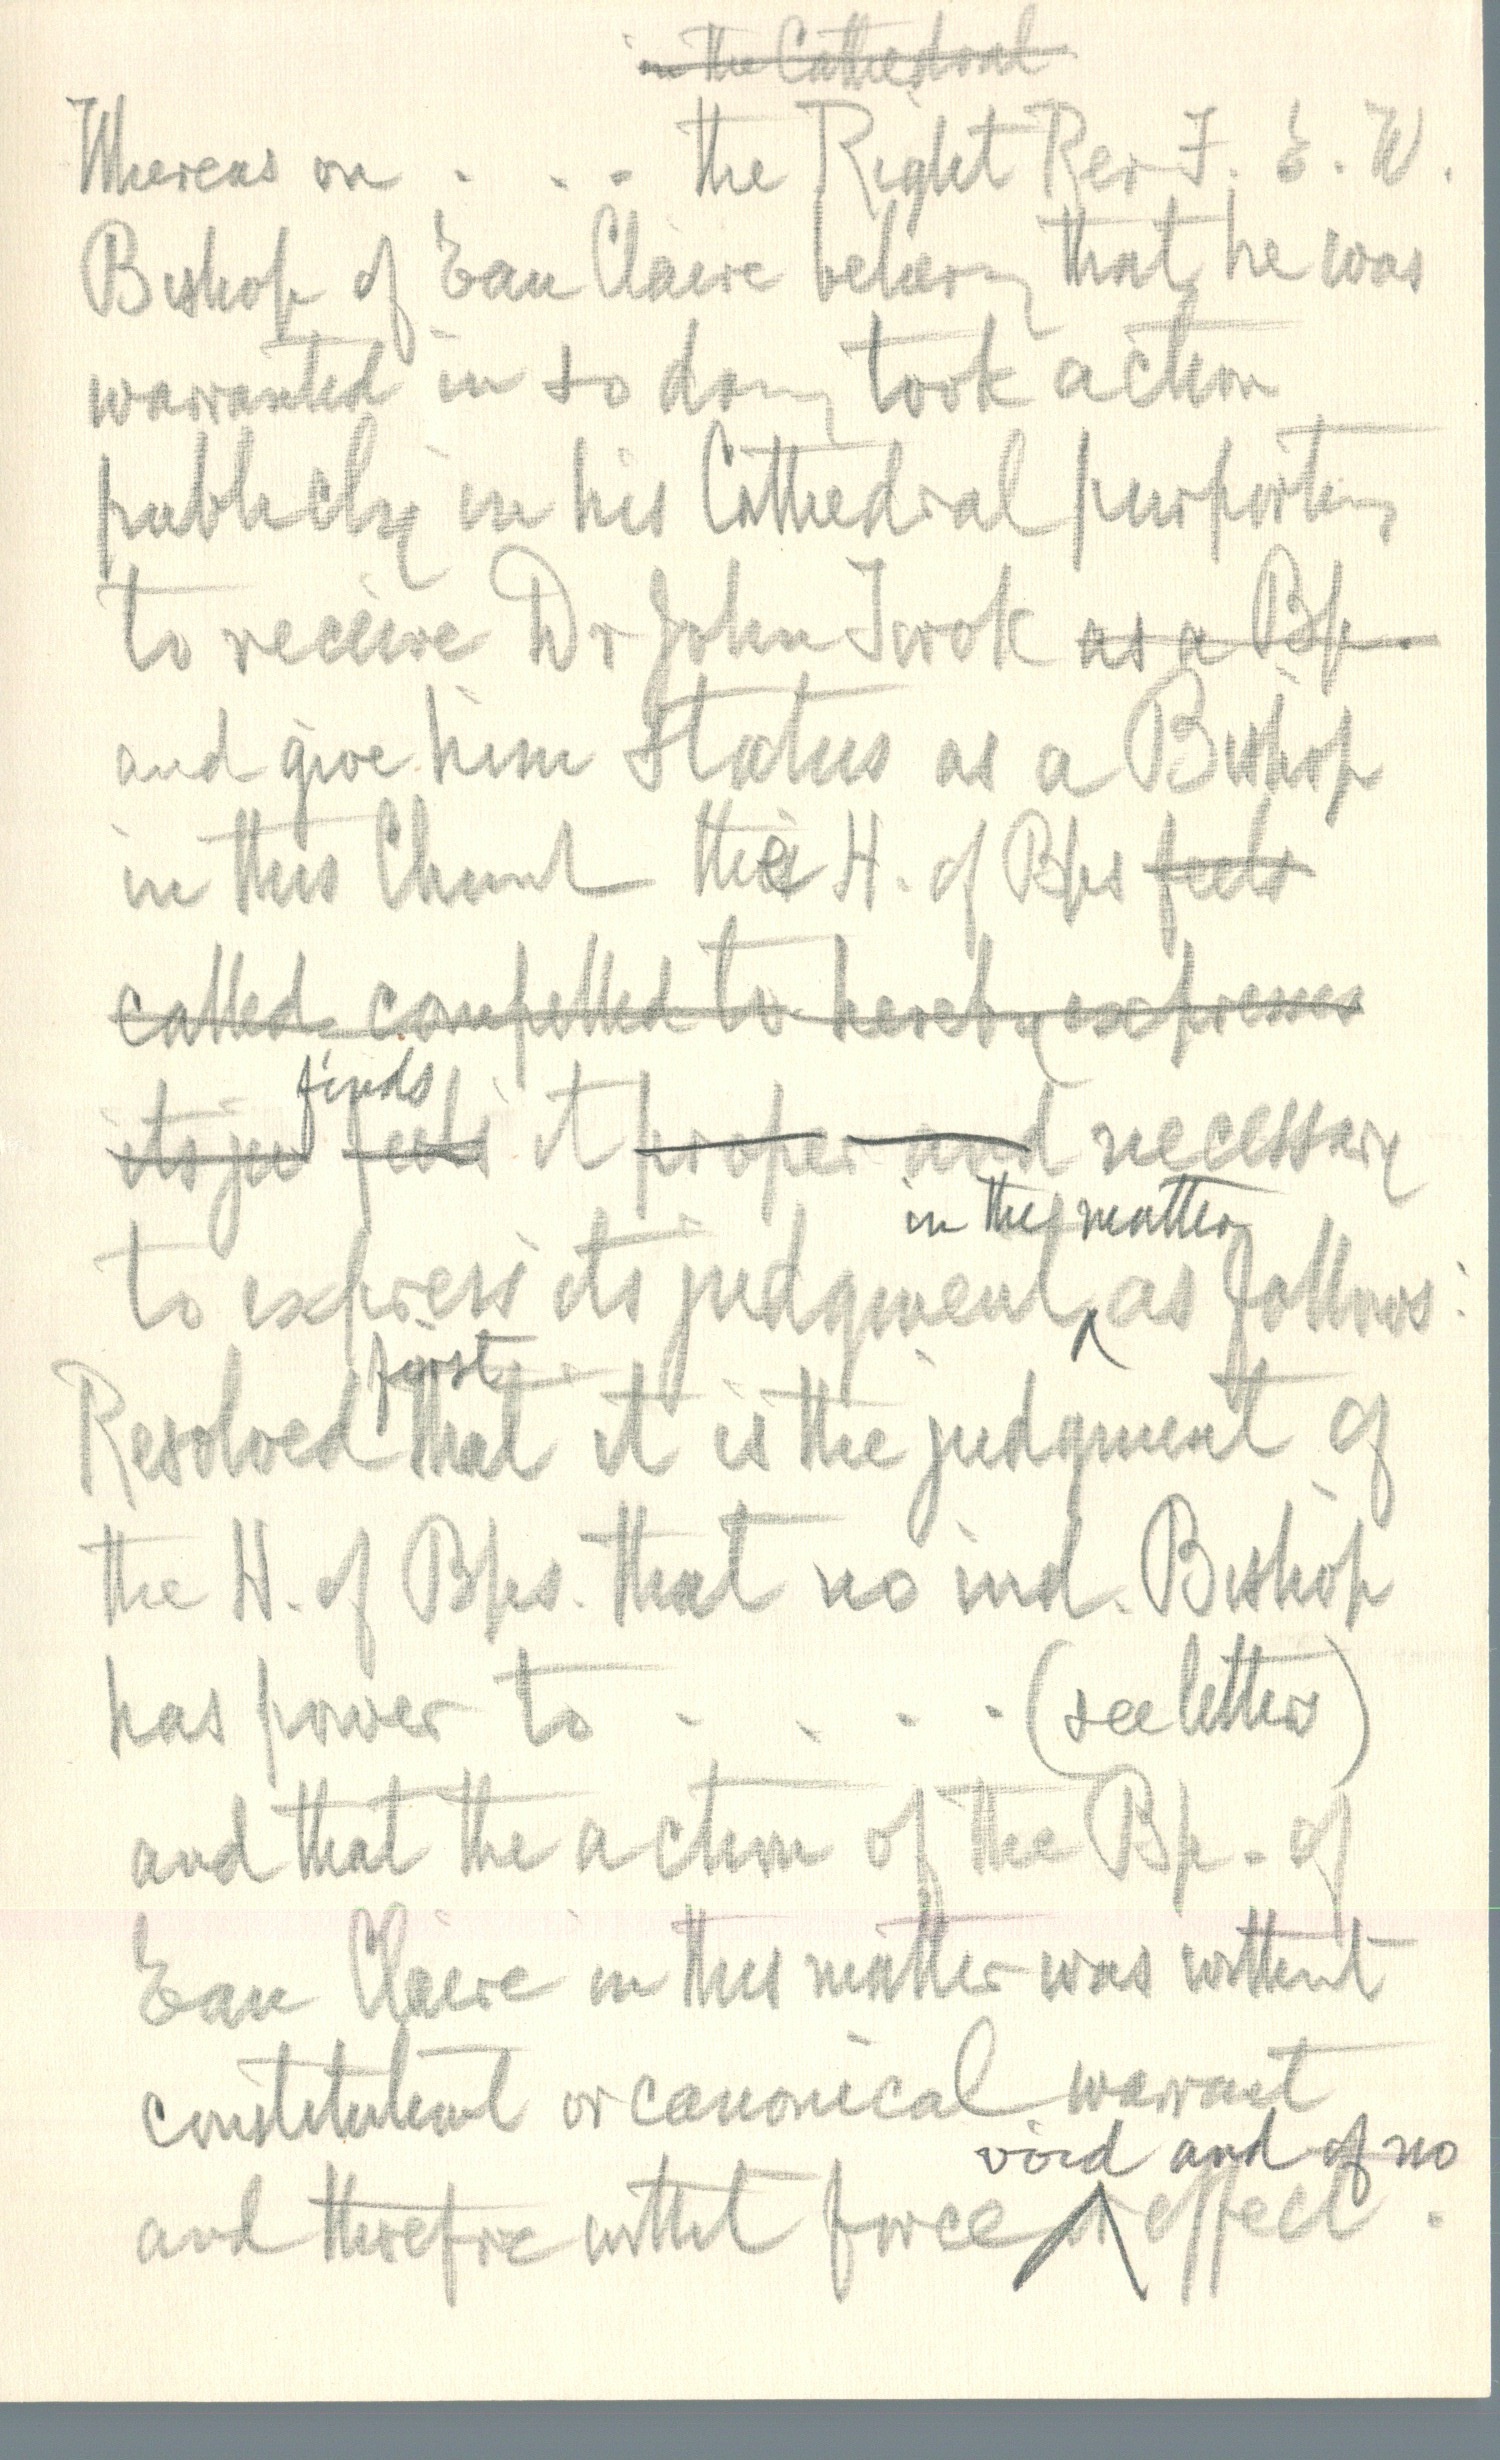 in the Cathedral
Whereas on . . . the Right Rev F. E. W.
Bishop of Eau Claire believing that he was
warranted in so doing took action
publicly in his Cathedral purporting
to receive Dr John Torok as a Bp.
and give him status as a Bishop
in this Church the H. of Bps feels
called compelled to hereby expresses
finds
its ju feels it proper and necessary
in the matter
to express its judgment as follows:
first
Resolved that it is the judgment of
the H. of Bps. that no ind. Bishop
has power to . . . . (see letter)
and that the action of the Bp. of
Eau Claire in this matter was without
constitutional or canonical warrant
void and of no
and therefore without force or effect.